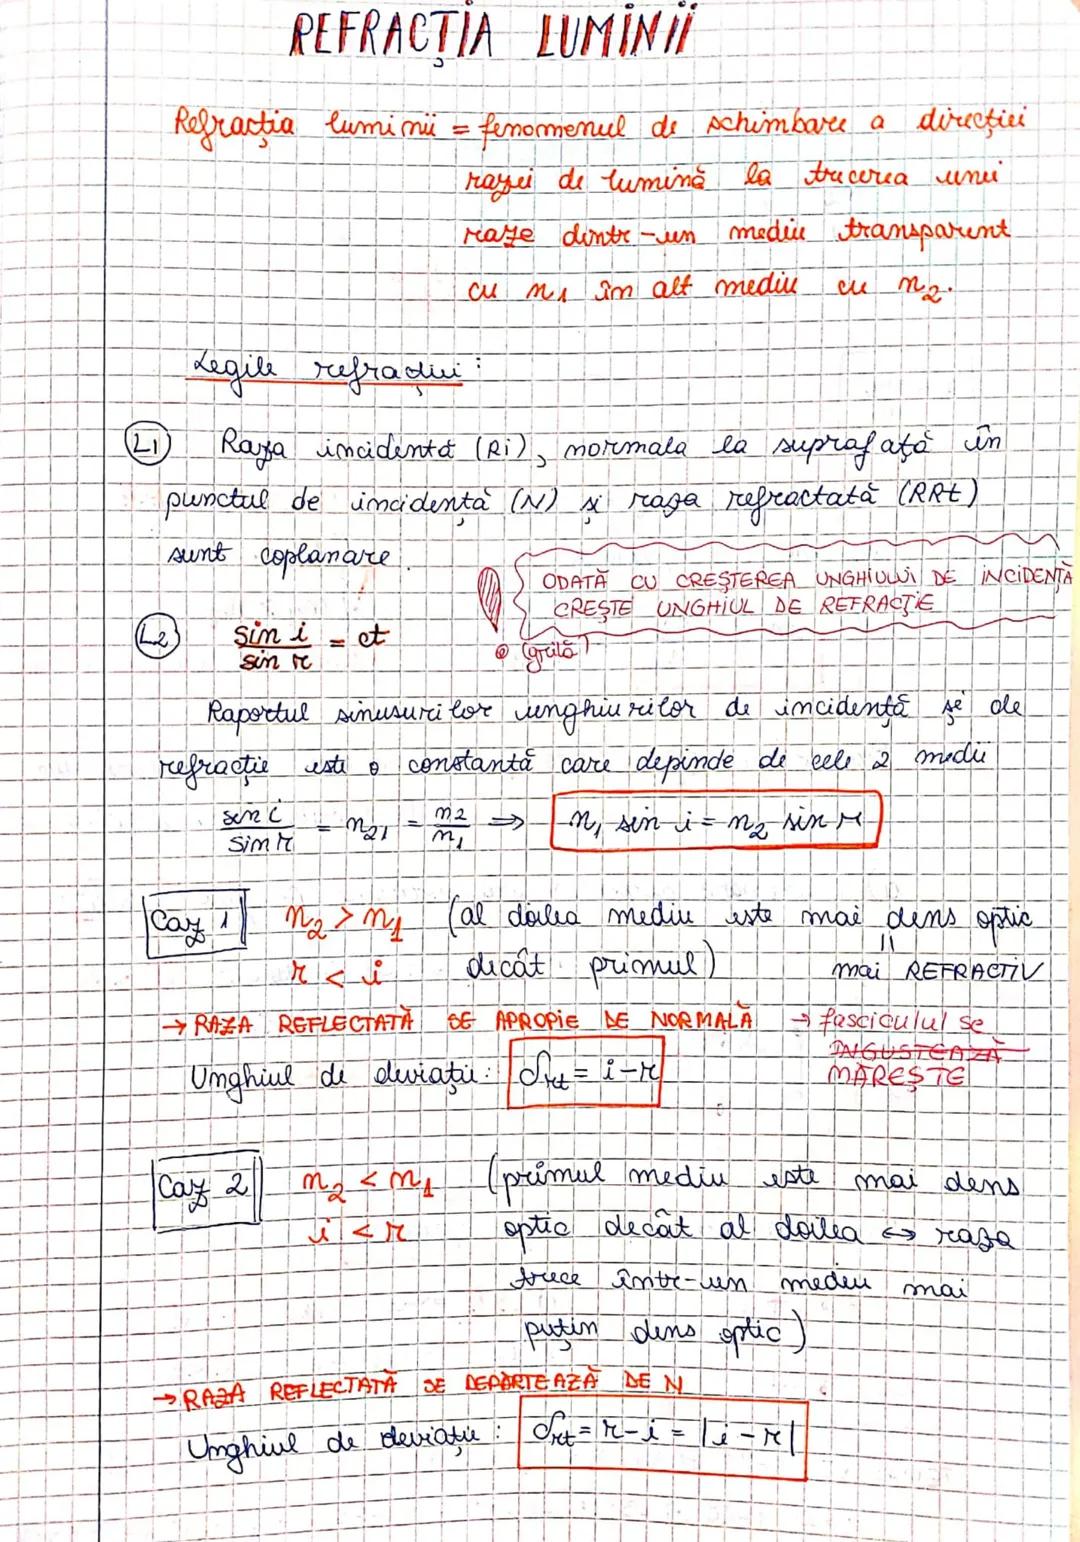 REFRACȚIA LUMINII
Refracția luminii = fenomenul de schimbare a direcției
razei de lumină la trecerea unei
raze dintr-un mediu transparent
cu n₁ în alt mediu cu n₂.
Legile refracției:
L1 Raza incidentă (Ri), normala la suprafață în
punctul de incidență (N) și raza refractată (RRt)
sunt coplanare.
ODATĂ CU CREȘTEREA UNGHIULUI DE INCIDENȚĂ
CREȘTE UNGHIUL DE REFRACȚIE
(grilă)
L2 sin i / sin r = ct
Raportul sinusurilor unghiurilor de incidență și de
refracție este o constantă care depinde de cele 2 medii
sin i / sin r = n₂₁ = n₂ / n₁ ⇒ n₁ sin i = n₂ sin r
Caz 1 n₂ > n₁ (al doilea mediu este mai dens optic
r < i decât primul) = mai REFRACTIV
→ RAZA REFLECTATĂ SE APROPIE DE NORMALĂ → fasciculul se
ÎNGUSTEAZĂ
MĂREȘTE
Unghiul de deviație: δrt = i-r
Caz 2 n₂ < n₁ (primul mediu este mai dens
i < r optic decât al doilea ↔ raza
trece într-un mediu mai
puțin dens optic)
→ RAZA REFLECTATĂ SE DEPĂRTEAZĂ DE N
Unghiul de deviație: δrt = r-i = |i-r|